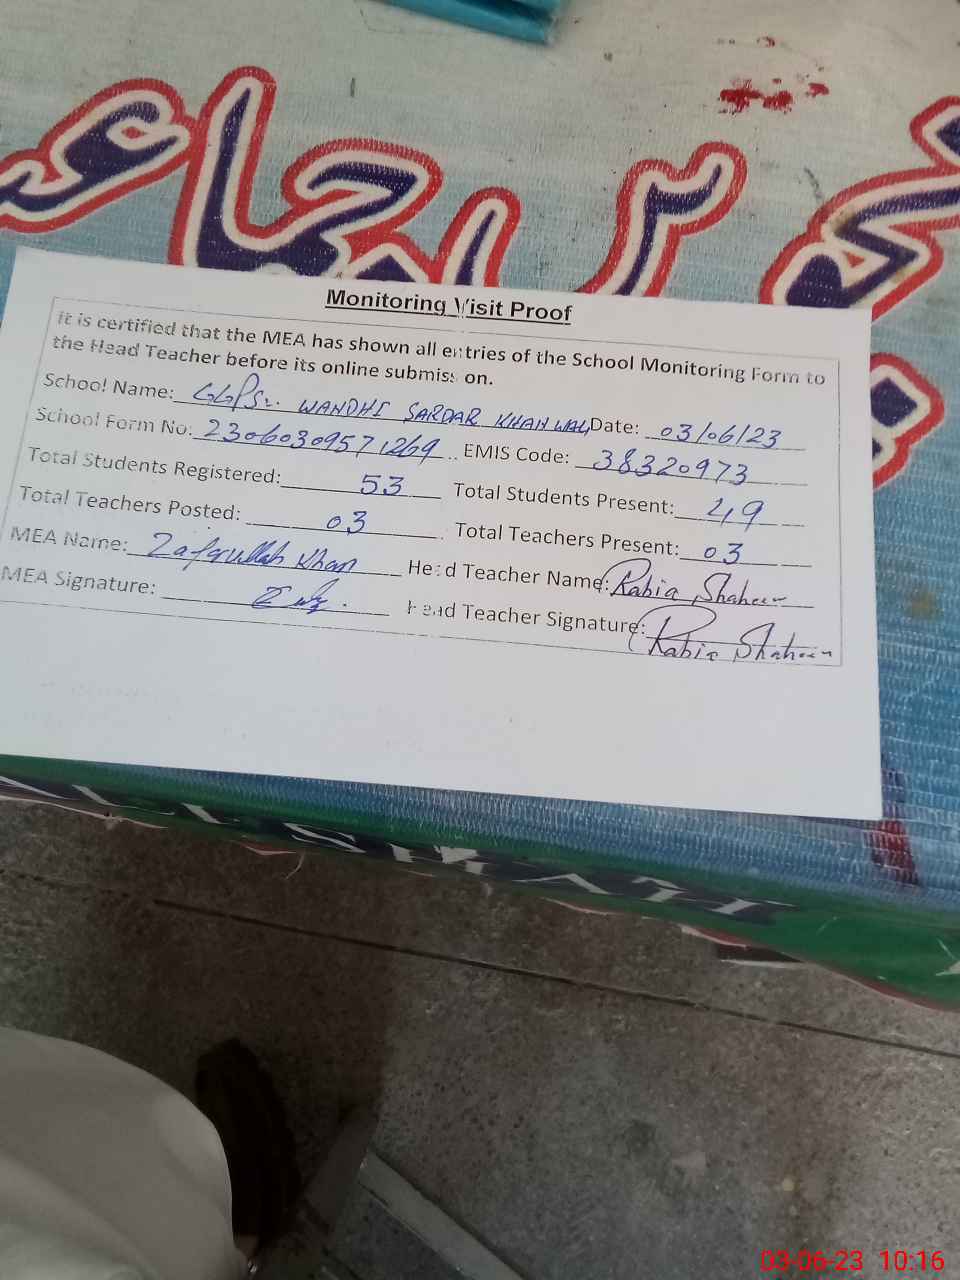 Monitoring Visit Proof
It is certified that the MEA has shown all entries of the School Monitoring Form to
the Head Teacher before its online submission.
School Name: GGPS.. WANDHI SARDAR KHAN WALI Date: 03/06/23
School Form No: 2306030957 1269 EMIS Code: 38320973
Total Students Registered: 53 Total Students Present: 49
Total Teachers Posted: 03 Total Teachers Present: 03
MEA Name: Zafarullah Khan Head Teacher Name: Rabia Shaheen
MEA Signature: Head Teacher Signature: Rabia Shaheen
03-06-23 10:16